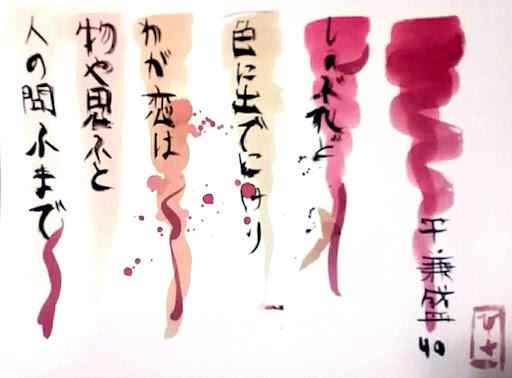 平兼盛 40
しのぶれど
色に出でにけり
わが恋は
物や思ふと
人の問ふまで